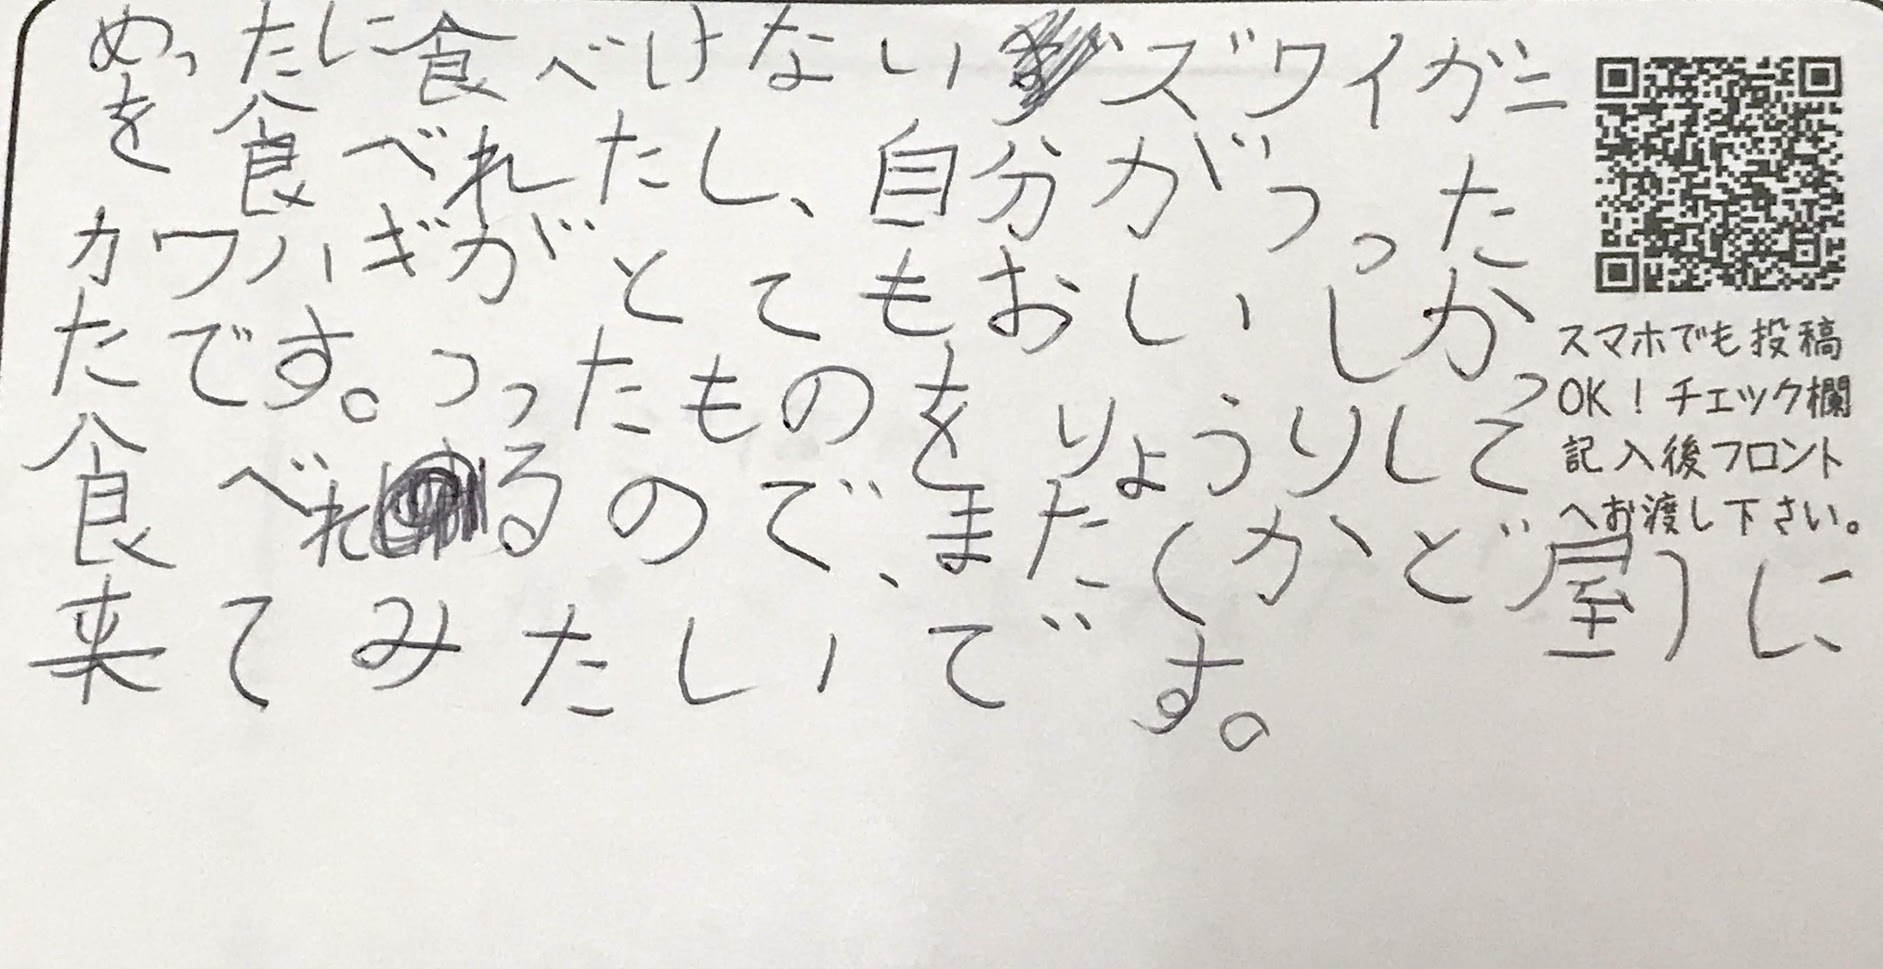 めったに食べけないズワイガニ
を食べれたし、自分がつった
カワハギがとてもおいしかっ
たです。つったものをりょうりして
食べれるので、また(かど屋)に
来てみたいです。
スマホでも投稿
OK！チェック欄
記入後フロント
へお渡し下さい。